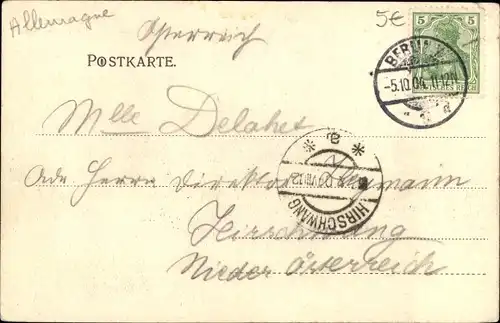 Allemagne
5€
Österreich
POSTKARTE.
5 5
DEUTSCHES REICH
BERLIN
-5.10.04. 11-12V
Mlle Delahet
Adr Herrn Direktor
HIRSCHWANG
Hirschwang
Nieder Österreich